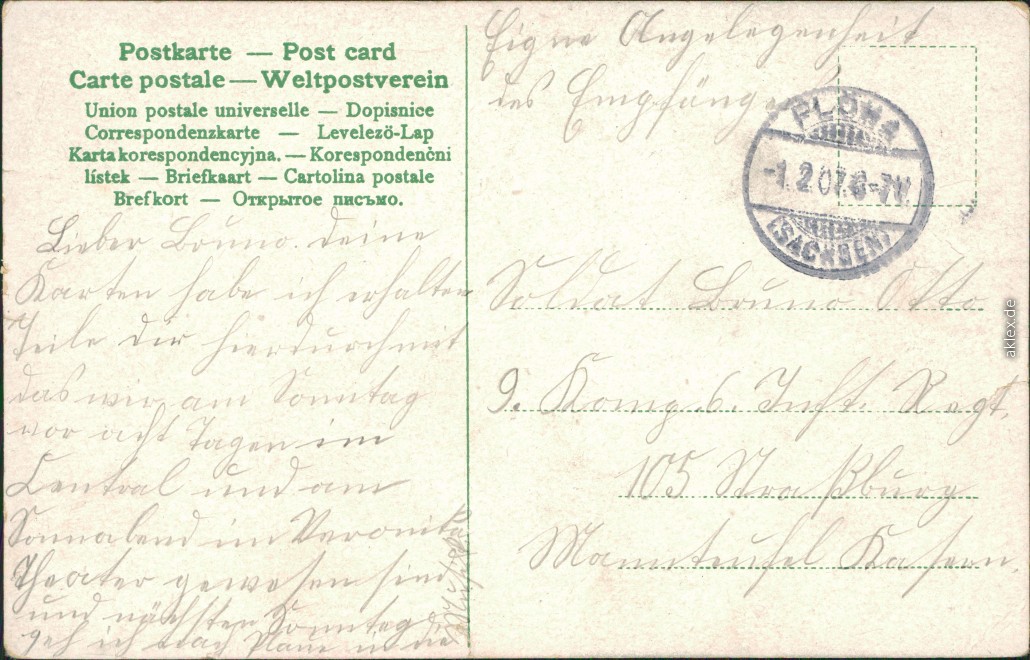 Postkarte — Post card
Carte postale — Weltpostverein
Union postale universelle — Dopisnice
Correspondenzkarte — Levelező-Lap
Karta korespondencyjna. — Korespondenční
lístek — Briefkaart — Cartolina postale
Brefkort — Открытое письмо.
Lieber Bruno. deine
Karten habe ich erhalten
Teile dir hierdurch mit
das wir am Sonntag
vor acht Tagen im
Central und am
Sonnabend im
Theater gewesen sind
und nächsten Sonntag
geh ich nach Plaue in die
Eigne Angelegenheit
des Empfängers
FLÖHA
-1.2.07. 6-7V.
(SACHSEN)
Soldat Bruno Otto
9. Komp. 6. Inft. Regt.
105 Straßburg
Mannteufel Kasern.
aklex.de